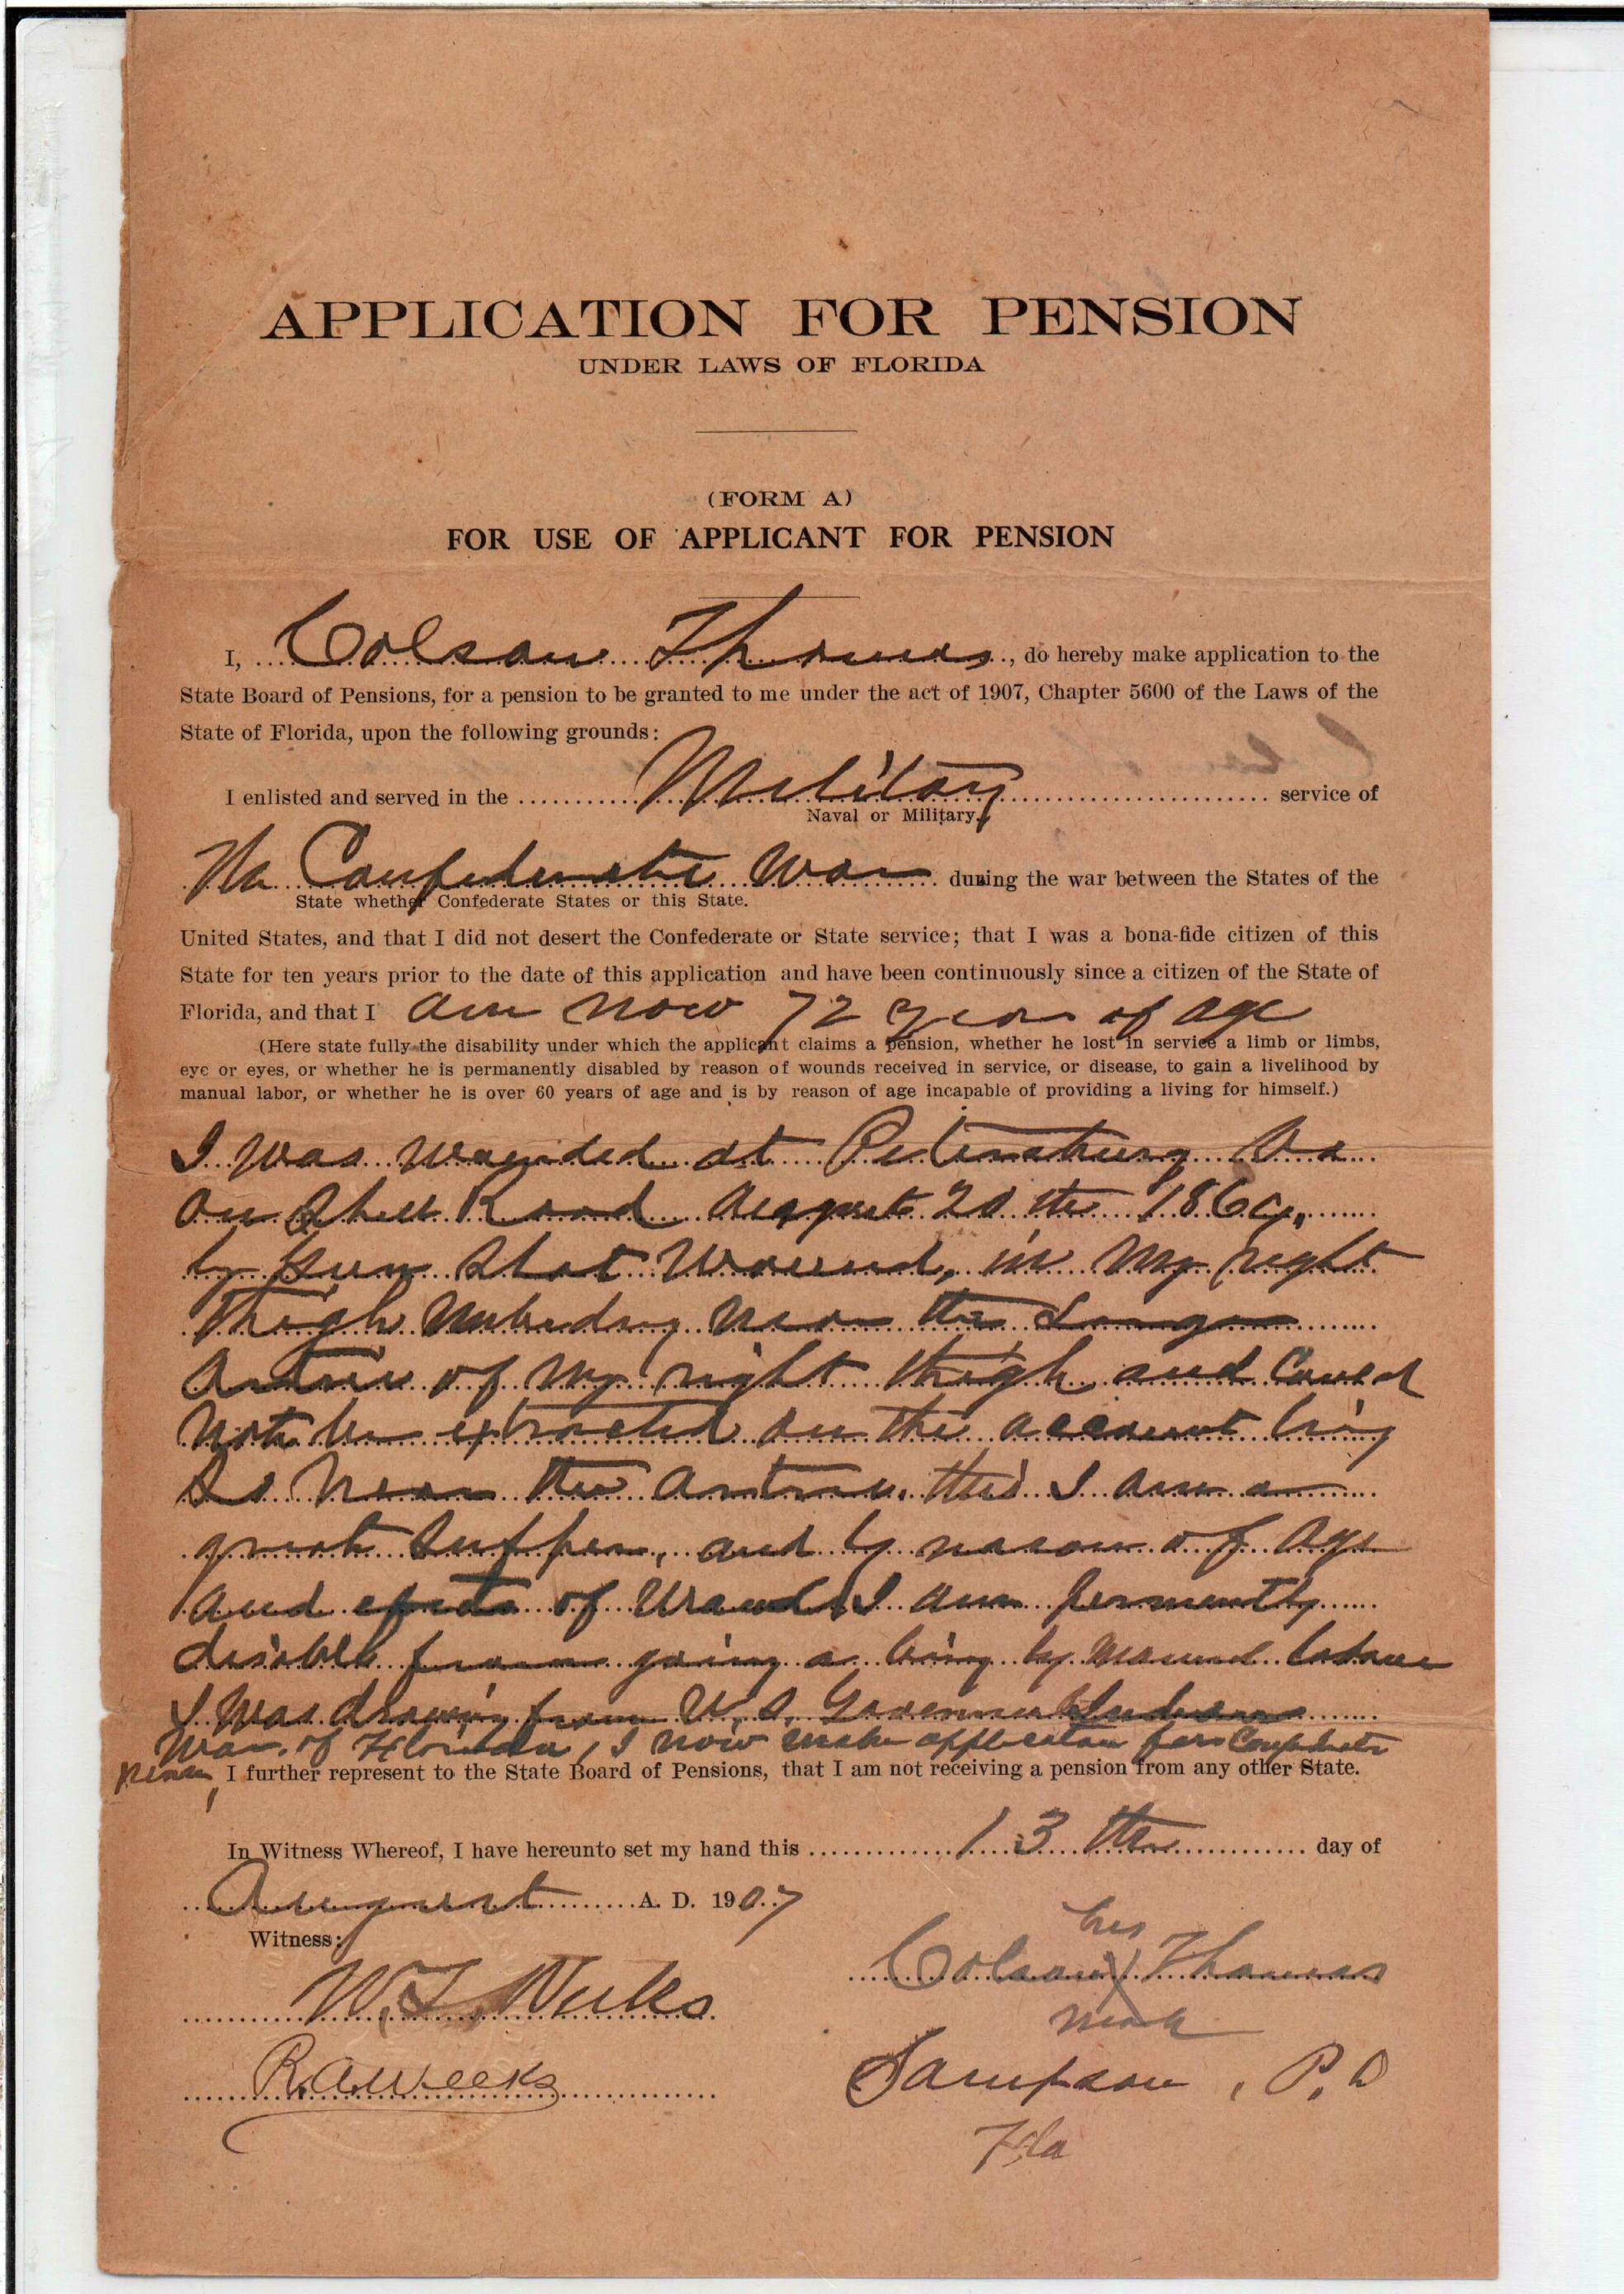 APPLICATION FOR PENSION
UNDER LAWS OF FLORIDA
(FORM A)
FOR USE OF APPLICANT FOR PENSION
I, Colson Thomas, do hereby make application to the
State Board of Pensions, for a pension to be granted to me under the act of 1907, Chapter 5600 of the Laws of the
State of Florida, upon the following grounds:
I enlisted and served in the Military service of
Naval or Military.
Confederate War during the war between the States of the
State whether Confederate States or this State.
United States, and that I did not desert the Confederate or State service; that I was a bona-fide citizen of this
State for ten years prior to the date of this application and have been continuously since a citizen of the State of
Florida, and that I am now 72 years of age
(Here state fully the disability under which the applicant claims a pension, whether he lost in service a limb or limbs,
eye or eyes, or whether he is permanently disabled by reason of wounds received in service, or disease, to gain a livelihood by
manual labor, or whether he is over 60 years of age and is by reason of age incapable of providing a living for himself.)
I was wounded at Petersburg Va
on Road August
by gun shot wound, in my right
thigh near the
of my right thigh and
not be extracted on the account
so near the I am a
great and by reason of age
and of I am
from a by labour
I was drawing from U.S.
War of Florida, I now make application for Confederate
I further represent to the State Board of Pensions, that I am not receiving a pension from any other State.
In Witness Whereof, I have hereunto set my hand this 13th day of
August A. D. 1907
Witness:
his
Colson X Thomas
mark
W.T. Weeks
R.A. Weeks
Sampson, P.O
Fla